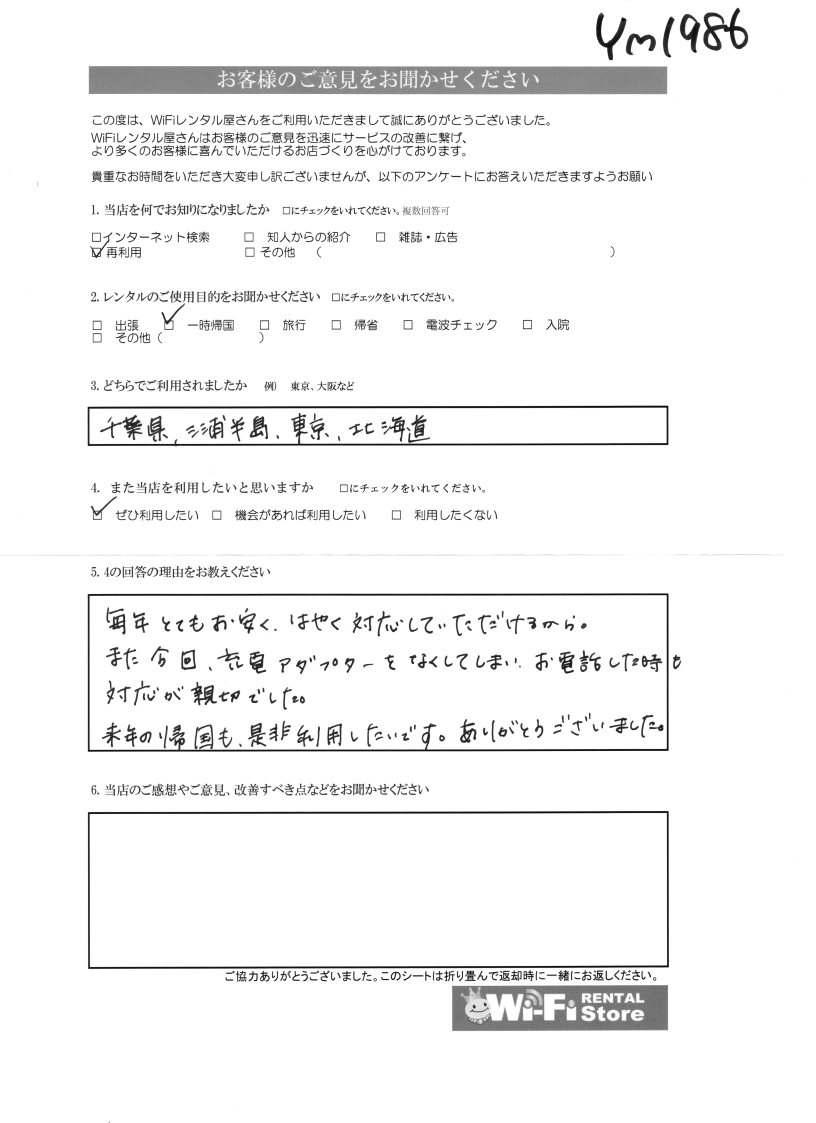 Ym1986
お客様のご意見をお聞かせください
この度は、WiFiレンタル屋さんをご利用いただきまして誠にありがとうございました。
WiFiレンタル屋さんはお客様のご意見を迅速にサービスの改善に繋げ、
より多くのお客様に喜んでいただけるお店づくりを心がけております。
貴重なお時間をいただき大変申し訳ございませんが、以下のアンケートにお答えいただきますようお願い
1. 当店を何でお知りになりましたか □にチェックをいれてください。複数回答可
□インターネット検索 □ 知人からの紹介 □ 雑誌・広告
☑再利用 □ その他 ( )
2. レンタルのご使用目的をお聞かせください □にチェックをいれてください。
□ 出張 ☑ 一時帰国 □ 旅行 □ 帰省 □ 電波チェック □ 入院
□ その他 ( )
3. どちらでご利用されましたか 例) 東京、大阪など
千葉県、三浦半島、東京、北海道
4. また当店を利用したいと思いますか □にチェックをいれてください。
☑ ぜひ利用したい □ 機会があれば利用したい □ 利用したくない
5. 4の回答の理由をお教えください
毎年とてもお安く、はやく対応していただけるから。
また今回、充電アダプターをなくしてしまい、お電話した時も
対応が親切でした。
来年の帰国も、是非利用したいです。ありがとうございました。
6. 当店のご感想やご意見、改善すべき点などをお聞かせください
ご協力ありがとうございました。このシートは折り畳んで返却時に一緒にお返しください。
Wi-Fi RENTAL
Store